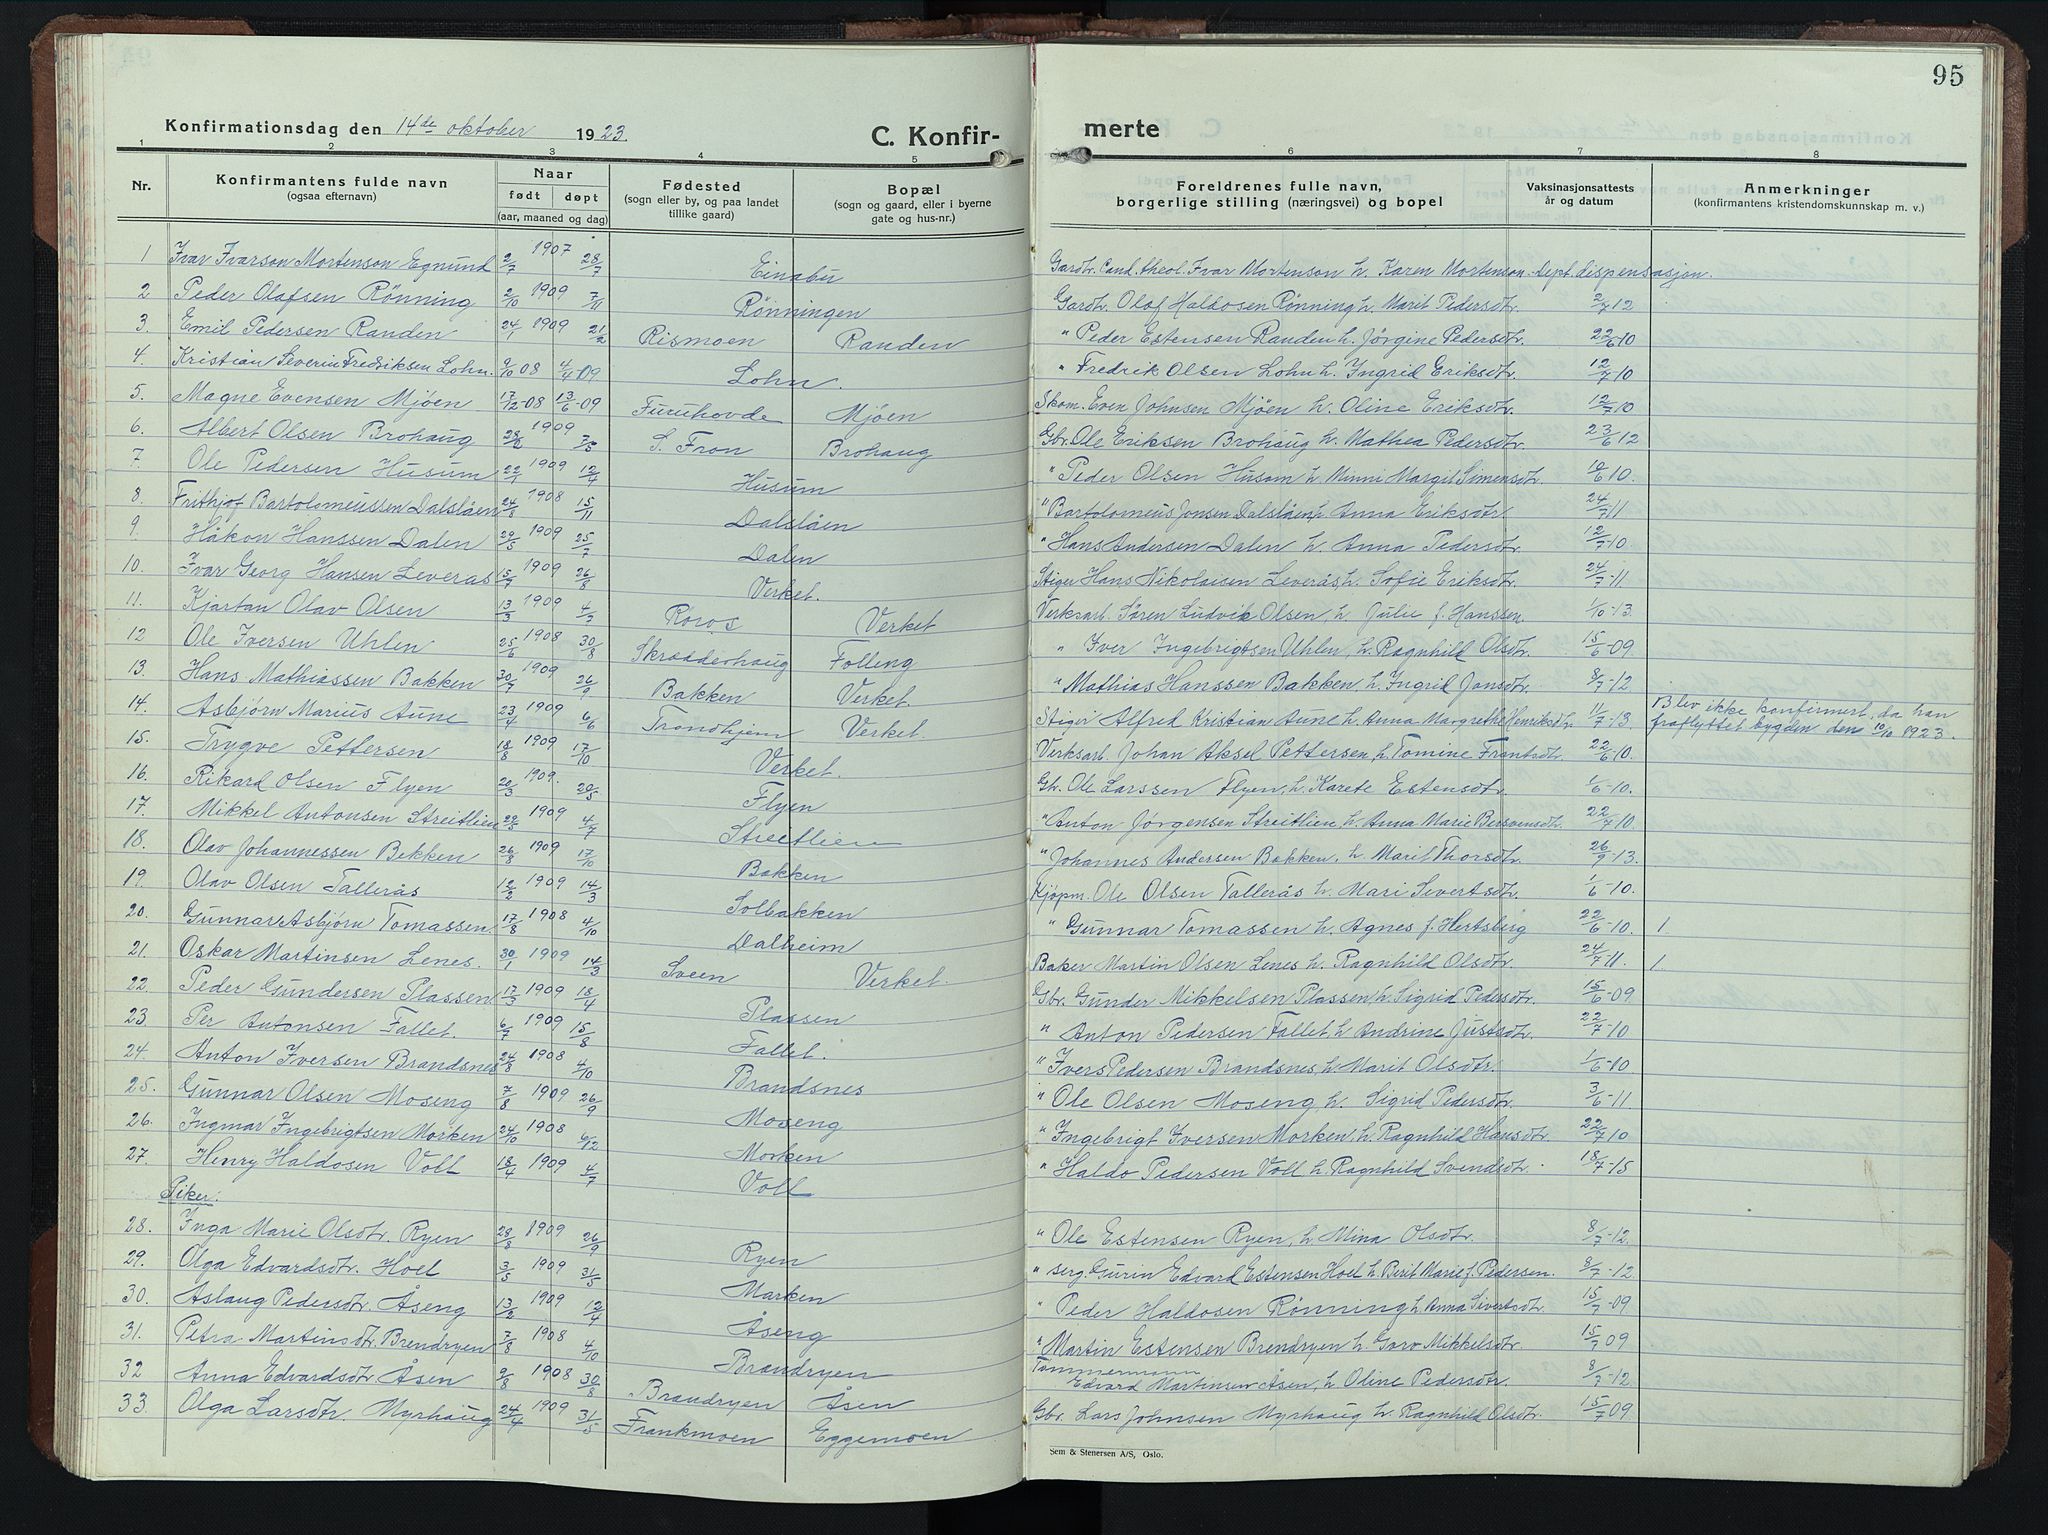 95
Konfirmationsdag den 14de oktober 1923. C. Konfir- merte
1 2 3 4 5 6 7 8
Nr. Konfirmantens fulde navn (ogsaa efternavn) Naar født døpt (aar, maaned og dag) Fødested (sogn eller by, og paa landet tillike gaard) Bopæl (sogn og gaard, eller i byerne gate og hus-nr.) Foreldrenes fulle navn, borgerlige stilling (næringsvei) og bopel Vaksinasjonsattests år og datum Anmerkninger (konfirmantens kristendomskunnskap m. v.)
1 Ivar Ivarson Mortenson Egnund 2/7 1907 28/7 Einabu Gardbr. Cand. theol. Ivar Mortenson h. Karen Mortenson. Dept. dispensasjon.
2 Peder Olafsen Rønning 2/10 1909 7/11 Rønningen Gardbr. Olaf Haldosen Rønning h. Marit Pedersdtr. 2/7 12
3. Emil Pedersen Randen 24/1 1909 21/2 Rismoen Randen " Peder Estensen Randen h. Jørgine Pedersdtr. 22/6 10
4. Kristian Severin Fredriksen Lohn. 9/10 08 4/4-09 Lohn. " Fredrik Olsen Lohn h. Ingrid Eriksdtr. 12/7-10
5. Magne Evensen Mjøen 17/12-08 13/6-09 Furuhovde Mjøen Skom. Even Johnsen Mjøen h. Oline Eriksdtr. 12/7 10
6. Albert Olsen Brohaug 28/2 1909 7/3 S. Fron Brohaug Gbr. Ole Eriksen Brohaug h. Mathea Pedersdtr. 23/6 12
7. Ole Pedersen Husum 22/1 1909 12/4 Husum " Peder Olsen Husom h. Minni Margit Simensdtr. 10/6 10.
8. Frithjof Bartolomeussen Dalslåen 24/8 1908 15/11 Dalslåen " Bartolomeus Jonsen Dalslåen h. Anna Eriksdtr. 24/7 11
9. Håkon Hanssen Dalen 29/5 1909 25/7 Dalen " Hans Andersen Dalen h. Anna Pedersdtr. 12/7-10.
10. Ivar Georg Hansen Leverås 15/7 1909 26/8 Verket. Stiger Hans Nikolaisen Leverås h. Sofie Eriksdtr. 24/7-11.
11. Kjartan Olav Olsen 13/3 1909 4/7 Røros Verket Verksarb. Søren Ludvik Olsen, h. Julie f. Hanssen. 1/10-13.
12 Ole Iversen Uhlen 25/6 1908 30/8 Skradderhaug Folling " Iver Ingebrigtsen Uhlen, h. Ragnhild Olsdtr. 15/6-09
13. Hans Mathiassen Bakken 30/7 1909 26/9 Bakken Verket. " Mathias Hanssen Bakken, h. Ingrid Jonsdtr. 8/7-12.
14. Asbjørn Marius Aune 23/4 1909 6/6 Trondhjem Verket. Stiger Alfred Kristian Aune h. Anna Margrethe Henriksdtr. 11/7-13. Blev ikke konfirmert, da han
fraflyttet bygden den 10/10 1923.
15. Trygve Pettersen 18/8 1909 17/10 Verket. Verksarb. Johan Aksel Pettersen, h. Tomine Frantsdtr. 22/6-10.
16. Rikard Olsen Flyen 20/3 1909. 20/5 Flyen Gbr. Ole Larssen Flyen, h. Karete Estensdtr. 1/6-10.
17. Mikkel Antonsen Streitlien 29/5 1909 4/7 Streitlien " Anton Jørgensen Streitlien, h. Anna Marie Bersvensdtr. 22/7 10.
18. Olav Johannessen Bekken 26/8 1909 17/10 Bakken " Johannes Andersen Bakken, h. Marit Thorsdtr. 26/9-13.
19. Olav Olsen Tallerås 12/2 1909 14/3 Solbakken Kjøpm. Ole Olsen Tallerås h. Mari Sivertsdtr. 1/6-10.
20. Gunnar Asbjørn Tomassen. 17/8 1908 4/10 Dalheim " Gunnar Tomassen h. Agnes f. Hertsberg 22/6-10. 1.
21. Oskar Martinsen Lenes. 30/1 1909 14/3 Sveen Verket. Baker Martin Olsen Lenes h. Ragnhild Olsdtr. 24/7-11. 1.
22. Peder Gundersen Plassen 17/3 1909 18/4 Plassen Gbr. Gunder Mikkelsen Plassen h. Sigrid Pedersdtr. 15/6-09
23. Per Antonsen Fallet. 6/7 1909 15/8 Fallet. " Anton Pedersen Fallet h. Andrine Justsdtr. 22/7-10
24. Anton Iversen Brandsnes 24/8 1908 4/10 Brandsnes " Ivers Pedersen Brandsnes, h. Marit Olsdtr. 1/6-10
25. Gunnar Olsen Moseng 7/8 1909 26/9 Moseng " Ole Olsen Moseng, h. Sigrid Pedersdtr. 3/6-11.
26. Ingmar Ingebrigtsen Morken 24/10 1908 6/12 Morken " Ingebrigt Iversen Morken, h. Ragnhild Hansdtr. 22/7 10
27. Henry Haldosen Voll 18/4 1909 4/7 Voll " Haldo Pedersen Voll h. Ragnhild Svendsdtr. 18/7-15
Piker:
28. Inga Marie Olsdtr. Ryen 28/8 1909 26/9 Ryen " Ole Estensen Ryen, h. Mina Olsdtr. 8/7-12.
29. Olga Edvardsdtr. Hoel 3/5 1909 31/5 Marken " serg. Gurin Edvard Estensen Hoel h. Birit Marie f. Pedersen. 8/7-12
30. Aslaug Pedersdtr. Åseng 13/2 1909 12/4 Åseng " Peder Haldosen Rønning h. Anna Sivertsdtr. 15/7-09
31. Petra Martinsdtr. Brendryen 7/8 1908 4/10 Brandryen " Martin Estensen Brendryen h. Goro Mikkelsdtr. 15/7 09
32 Anna Edvardsdtr. Åsen 9/8 1908 30/8 Brandryen Åsen Tømmermann Edvard Martinsen Åsen, h. Oline Pedersdtr. 8/7-12.
33. Olga Larsdtr. Myrhaug 24/4 1909 31/5 Frankmoen Eggemoen Gbr. Lars Johnsen Myrhaug h. Ragnhild Olsdtr. 15/7 09
Sem & Stenersen A/S, Oslo.